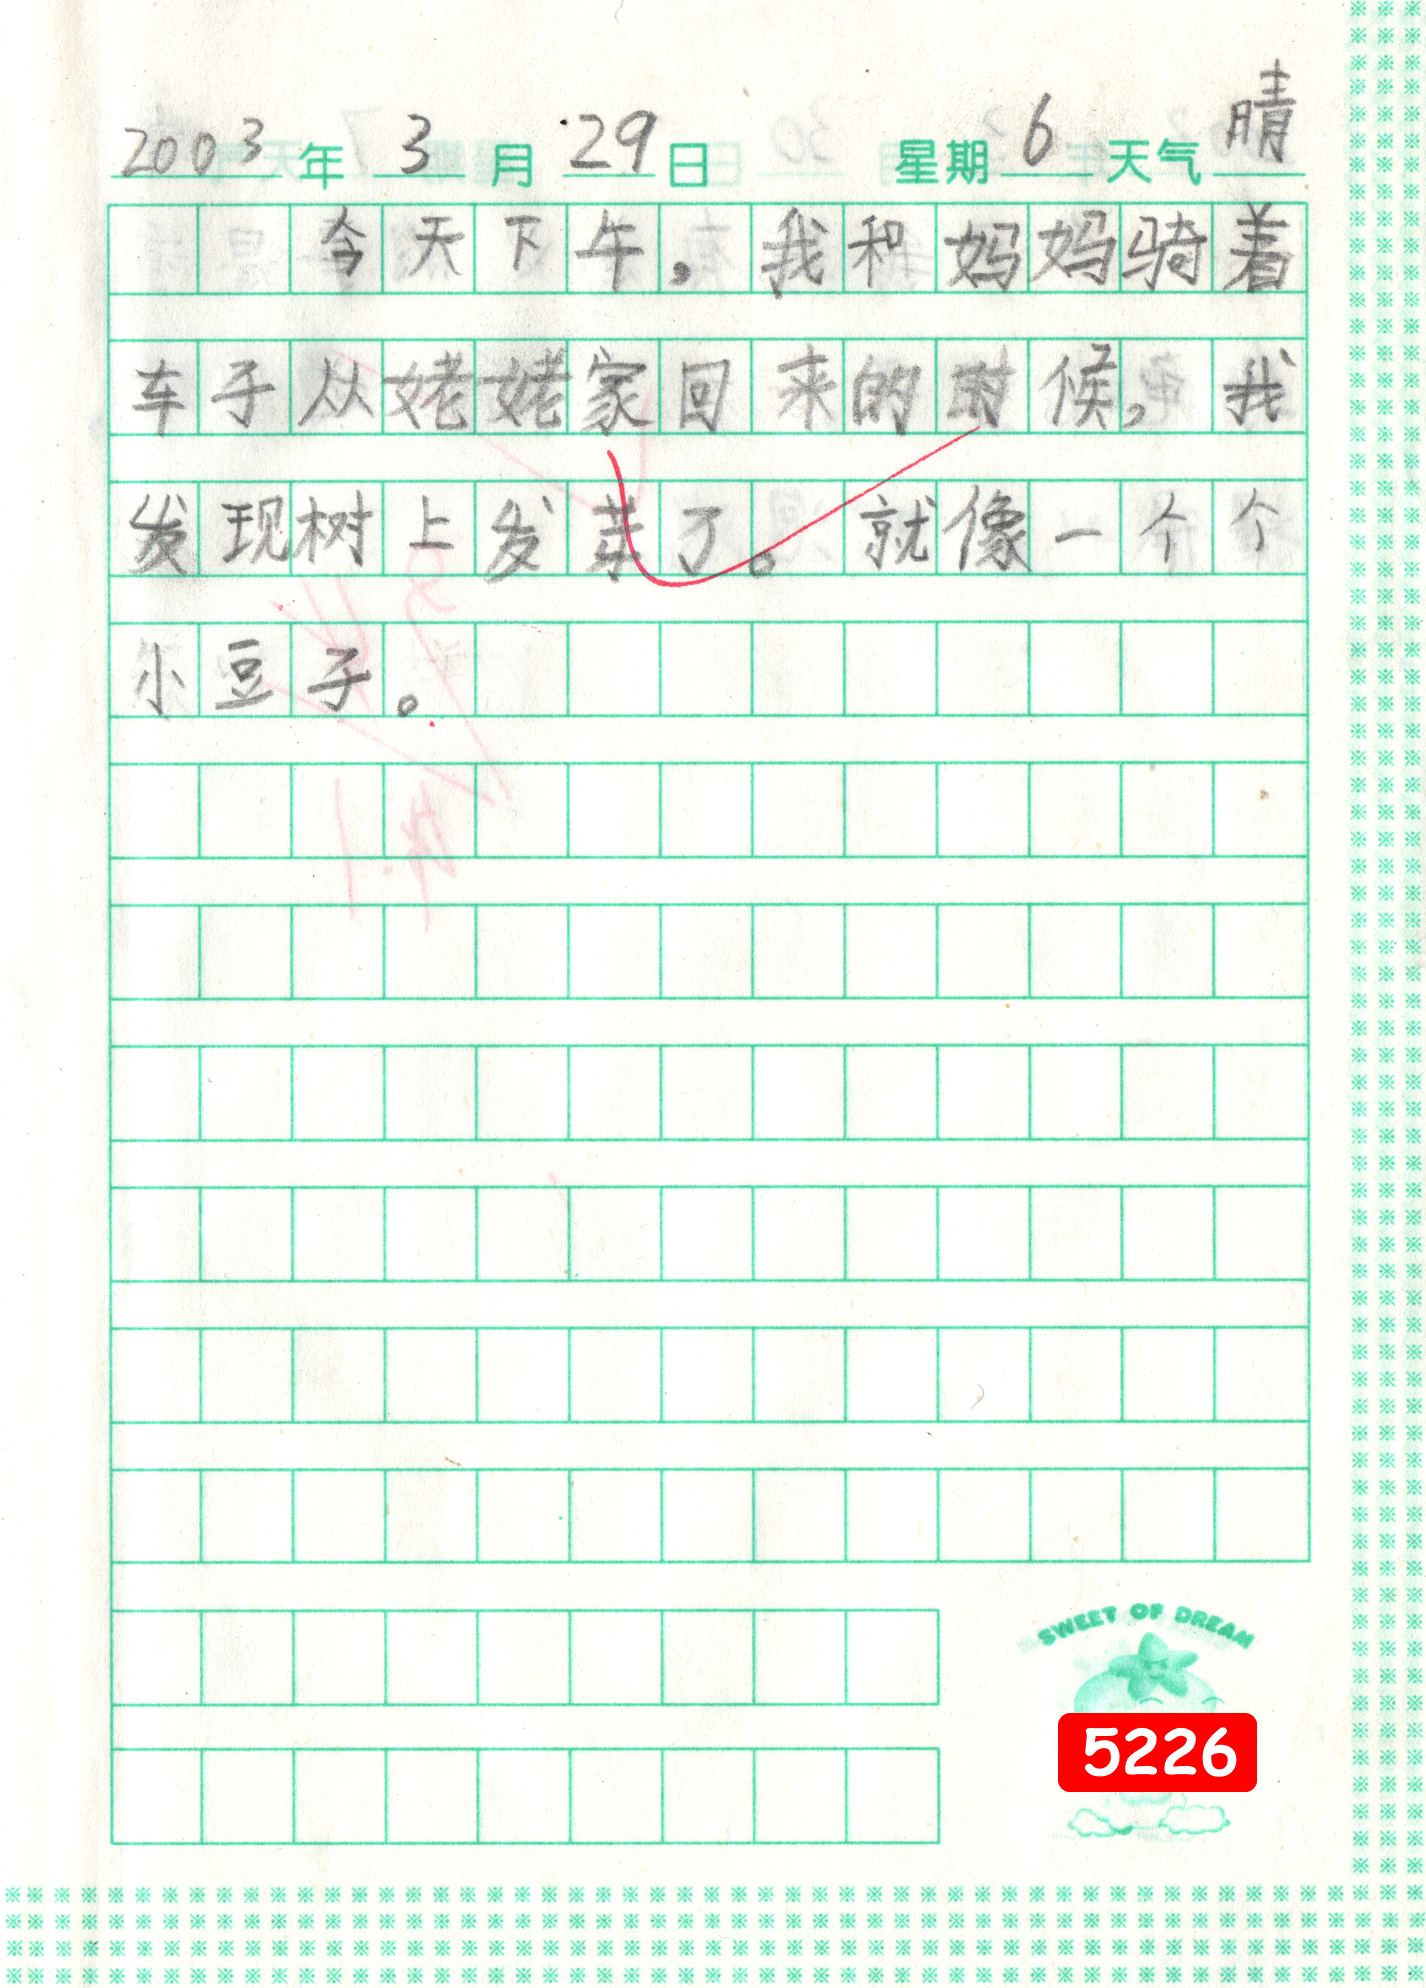 2003年3月29日 星期6天气晴
今天下午,我和妈妈骑着
车子从姥姥家回来的时候,我
发现树上发芽了。就像一个个
小豆子。
SWEET OF DREAM
5226